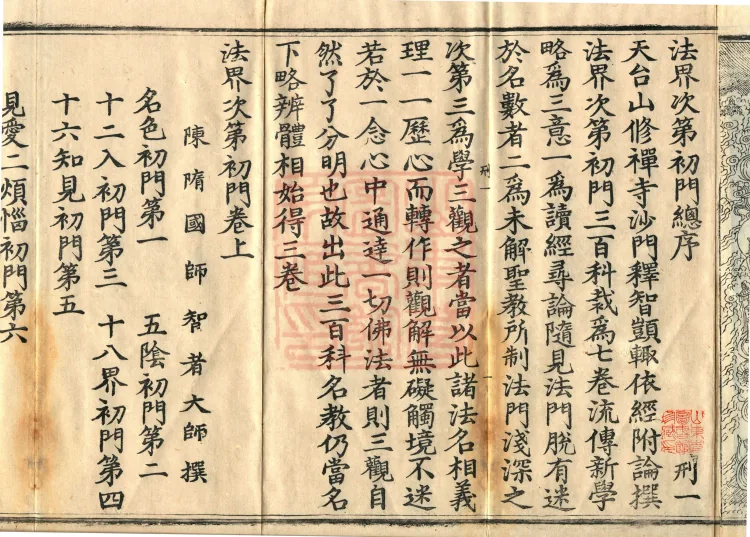 法界次第初門總序
刑一
天台山修禪寺沙門釋智顗輙依經附論撰
法界次第初門三百科裁爲七卷流傳新學
略爲三意一爲讀經尋論隨見法門脫有迷
於名數者二爲未解聖教所制法門淺深之
刑一
次第三爲學三觀之者當以此諸法名相義
理一一歷心而轉作則觀解無礙觸境不迷
若於一念心中通達一切佛法者則三觀自
然了了分明也故出此三百科名教仍當名
下略辨體相始得三卷
法界次第初門卷上
陳隋國師智者大師撰
名色初門第一 五陰初門第二
十二入初門第三 十八界初門第四
十六知見初門第五
見愛二煩惱初門第六